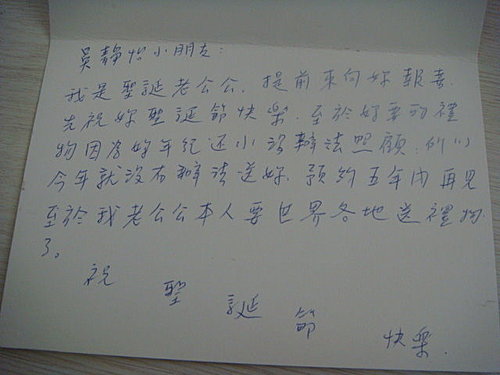 吳靜怡小朋友：
我是聖誕老公公，提前來向妳報喜，
先祝妳聖誕節快樂，至於妳要的禮
物因為妳年紀還小沒辦法照顧，所以
今年就沒有辦法送妳，預約五年內再見
至於我老公公本人要世界各地送禮物
了。
祝 聖 誕 節 快樂.